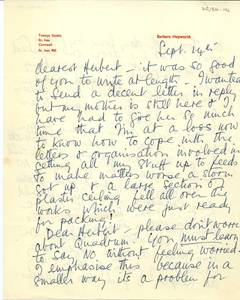 Trewyn Studio
St. Ives
Cornwall
Barbara Hepworth
Sept.
dearest Herbert – it was so good
of you to write at length – I wanted
to send a decent letter in reply
but my mother is still here & I
have had to give her so much
time that I'm at a loss now
to know how to cope with the
letters & organisation involved in
getting all my stuff up to Leeds
To make matters worse a storm
got up & a large section of
plaster ceiling fell all over the
works which were just ready
for packing!
Dear Herbert – please don't worry
about Quadrum. You must learn
to say No without feeling worried –
I emphasise this because in a
smaller way it's a problem for